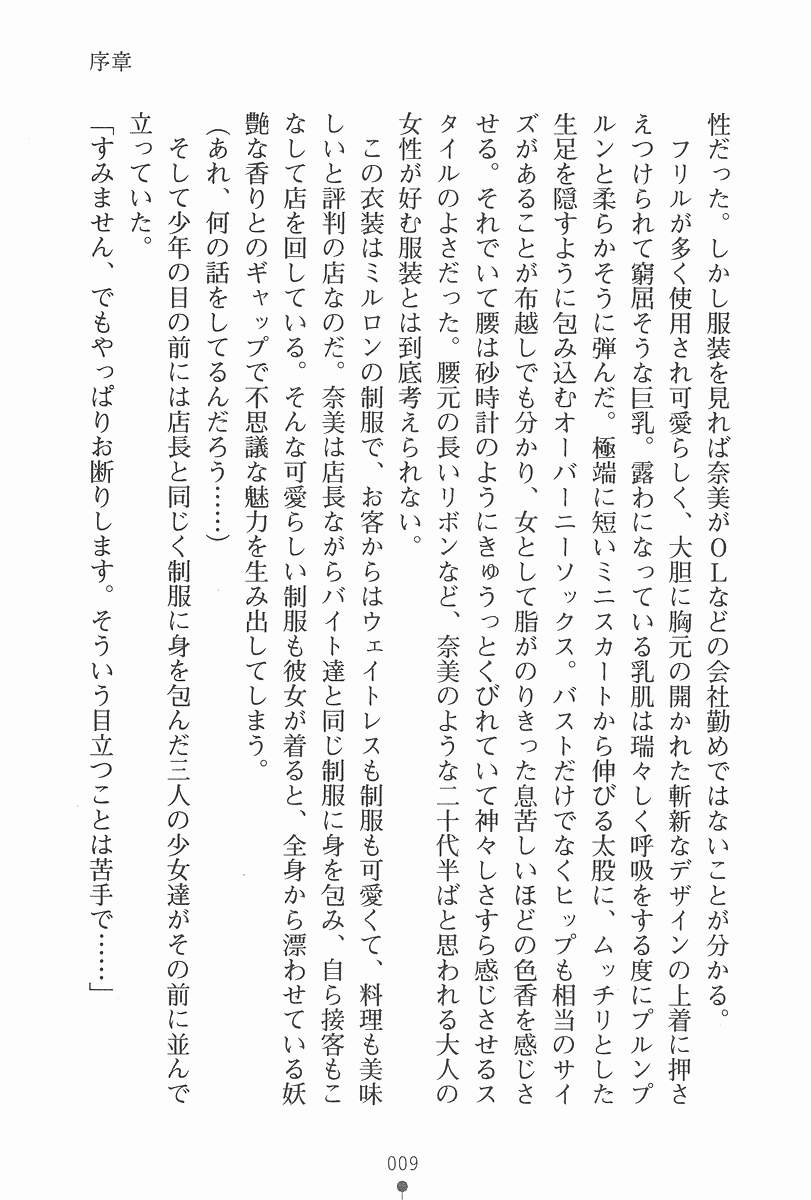 序章
性だった。しかし服装を見れば奈美がＯＬなどの会社勤めではないことが分かる。
　フリルが多く使用され可愛らしく、大胆に胸元の開かれた斬新なデザインの上着に押さ
えつけられて窮屈そうな巨乳。露わになっている乳肌は瑞々しく呼吸をする度にプルンプ
ルンと柔らかそうに弾んだ。極端に短いミニスカートから伸びる太股に、ムッチリとした
生足を隠すように包み込むオーバーニーソックス。バストだけでなくヒップも相当のサイ
ズがあることが布越しでも分かり、女として脂がのりきった息苦しいほどの色香を感じさ
せる。それでいて腰は砂時計のようにきゅうっとくびれていて神々しさすら感じさせるス
タイルのよさだった。腰元の長いリボンなど、奈美のような二十代半ばと思われる大人の
女性が好む服装とは到底考えられない。
　この衣装はミルロンの制服で、お客からはウェイトレスも制服も可愛くて、料理も美味
しいと評判の店なのだ。奈美は店長ながらバイト達と同じ制服に身を包み、自ら接客もこ
なして店を回している。そんな可愛らしい制服も彼女が着ると、全身から漂わせている妖
艶な香りとのギャップで不思議な魅力を生み出してしまう。
（あれ、何の話をしてるんだろう……）
　そして少年の目の前には店長と同じく制服に身を包んだ三人の少女達がその前に並んで
立っていた。
「すみません、でもやっぱりお断りします。そういう目立つことは苦手で……」
009